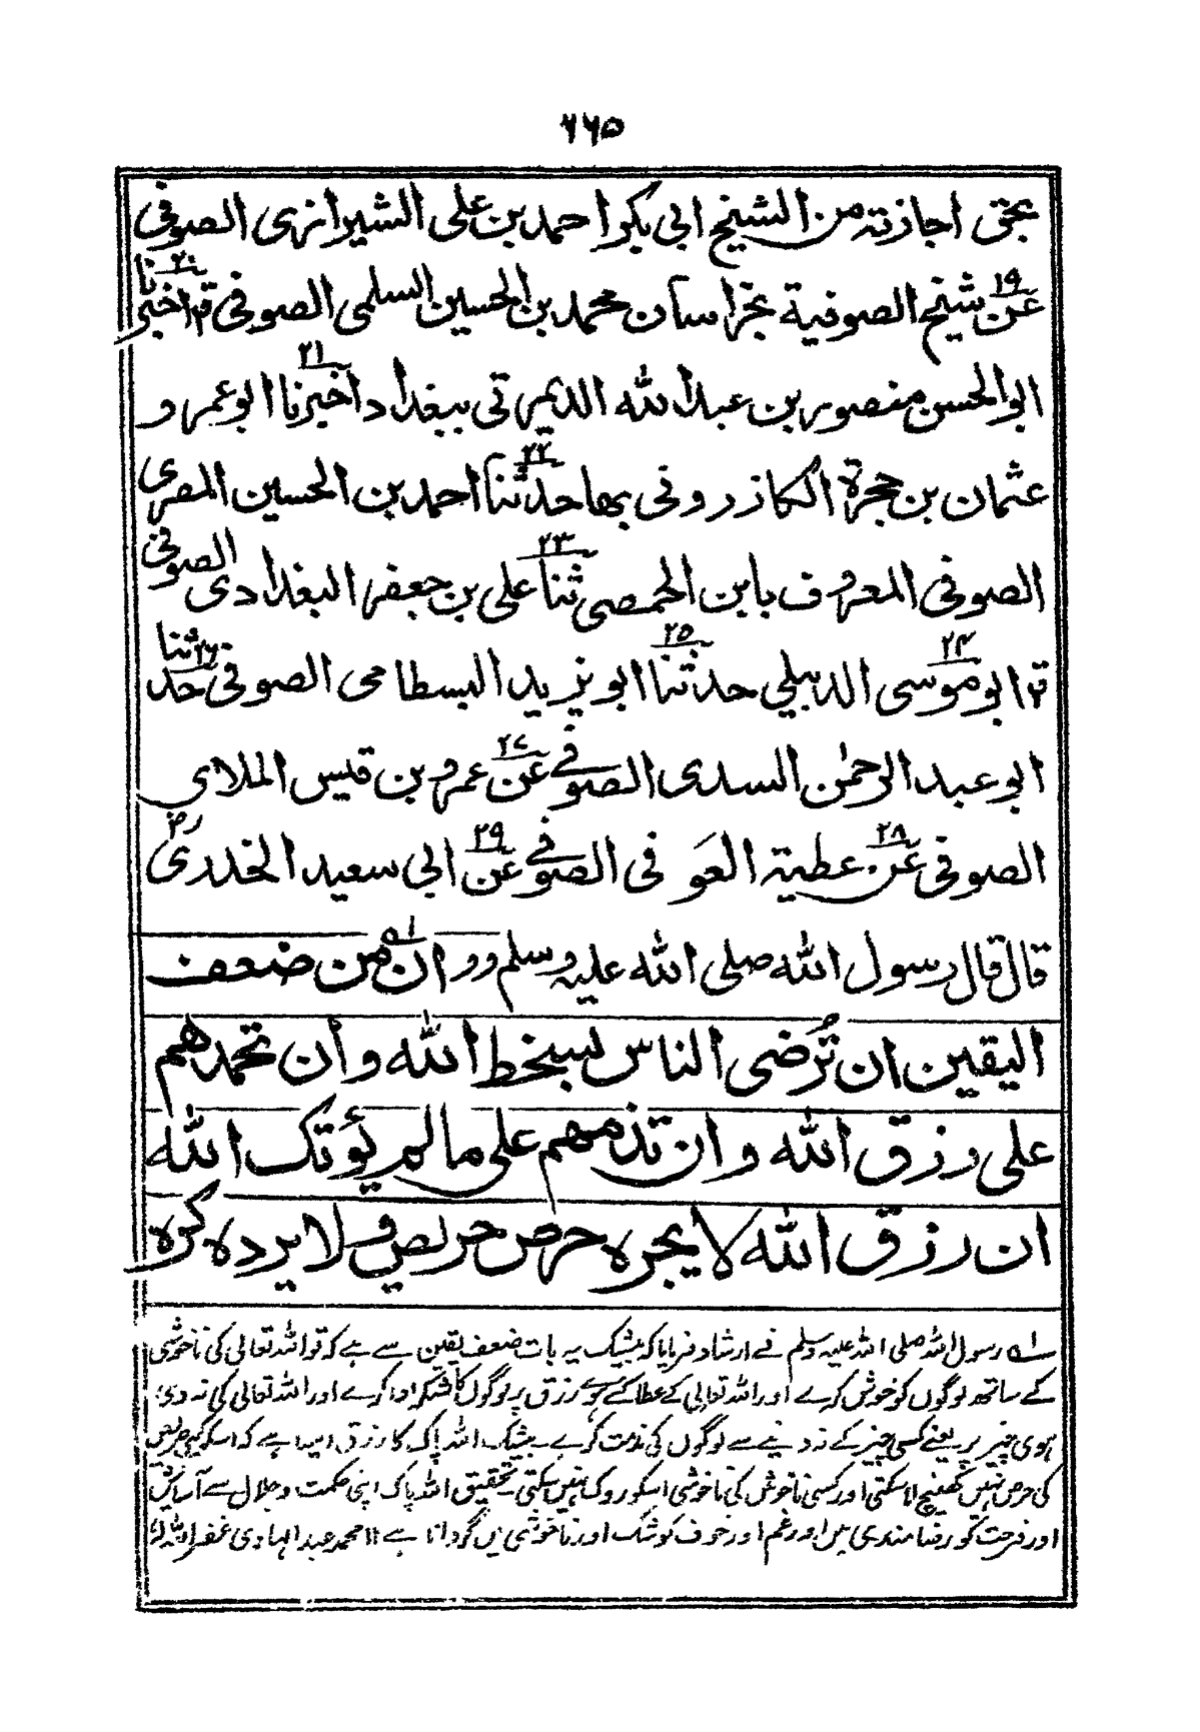 ۶۶۵
بحق اجازته من الشيخ ابي بكر احمد بن علی الشیرازی الصوفی
۱۹ ۲۰
عن شيخ الصوفية بخراسان محمد بن الحسین السلمی الصوفی قال اخبرنا
۲۱
ابوالحسن منصور بن عبد الله الديمرتی ببغداد اخبرنا ابو عمرو
۲۲
عثمان بن حجرة الكازرونی بها حدثنا احمد بن الحسین المصری
۲۳
الصوفی المعروف بابن الحمصی ثنا علی بن جعفر البغدادی الصوفی
۲۴ ۲۵ ۲۶
قال ابو موسی الدبیلی حدثنا ابو یزید البسطامی الصوفی حدثنا
۲۷
ابو عبد الرحمٰن السدی الصوفی عن عمرو بن قیس الملای
۲۸ ۲۹
الصوفی عن عطیة العَوفی الصوفی عن ابی سعید الخدری رض
قال قال رسول الله صلی الله علیه وسلم وو ان من ضعف
الیقین ان تُرضی الناس بسخط الله وأن تحمدهم
علی رزق الله وان تذمهم علی مالم یؤتک الله
ان رزق الله لا یجره حرص حریص ولا یرده کره
۱؎ رسول اللہ صلی اللہ علیہ وسلم نے ارشاد فرمایا کہ بیشک یہ بات ضعف یقین سے ہے کہ تو اللہ تعالی کی ناخوشی
کے ساتھ لوگوں کو خوش کرے اور اللہ تعالی کے عطا کئے ہوئے رزق پر لوگوں کا شکر ادا کرے اور اللہ تعالی کی نہ دی
ہوی چیز پر یعنے کسی چیز کے نہ دینے سے لوگوں کی مذمت کرے۔ بیشک اللہ پاک کا رزق ایسا ہے کہ اسکو کسی حریص
کی حرص نہیں کھینچ لا سکتی اور کسی ناخوش کی ناخوشی اسکو روک نہیں سکتی۔ تحقیق اللہ پاک اپنی حکمت و جلال سے آسائش
اور فرحت کو رضا مندی میں اور غم اور خوف کو شک اور ناخوشی میں گردانا ہے ۱۱ محمد عبد الہادی غفر اللہ لہ